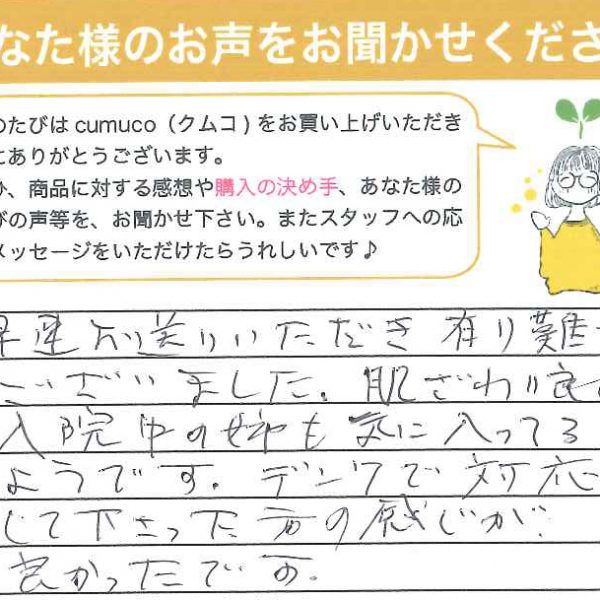 なた様のお声をお聞かせくださ
のたびは cumuco（クムコ）をお買い上げいただき
にありがとうございます。
、商品に対する感想や購入の決め手、あなた様の
びの声等を、お聞かせ下さい。またスタッフへの応
メッセージをいただけたらうれしいです♪
早速お送りいただき有り難
ございました。肌ざわり良
入院中の姉も気に入ってる
ようです。デンワで対応
して下さった方の感じが
良かったです。